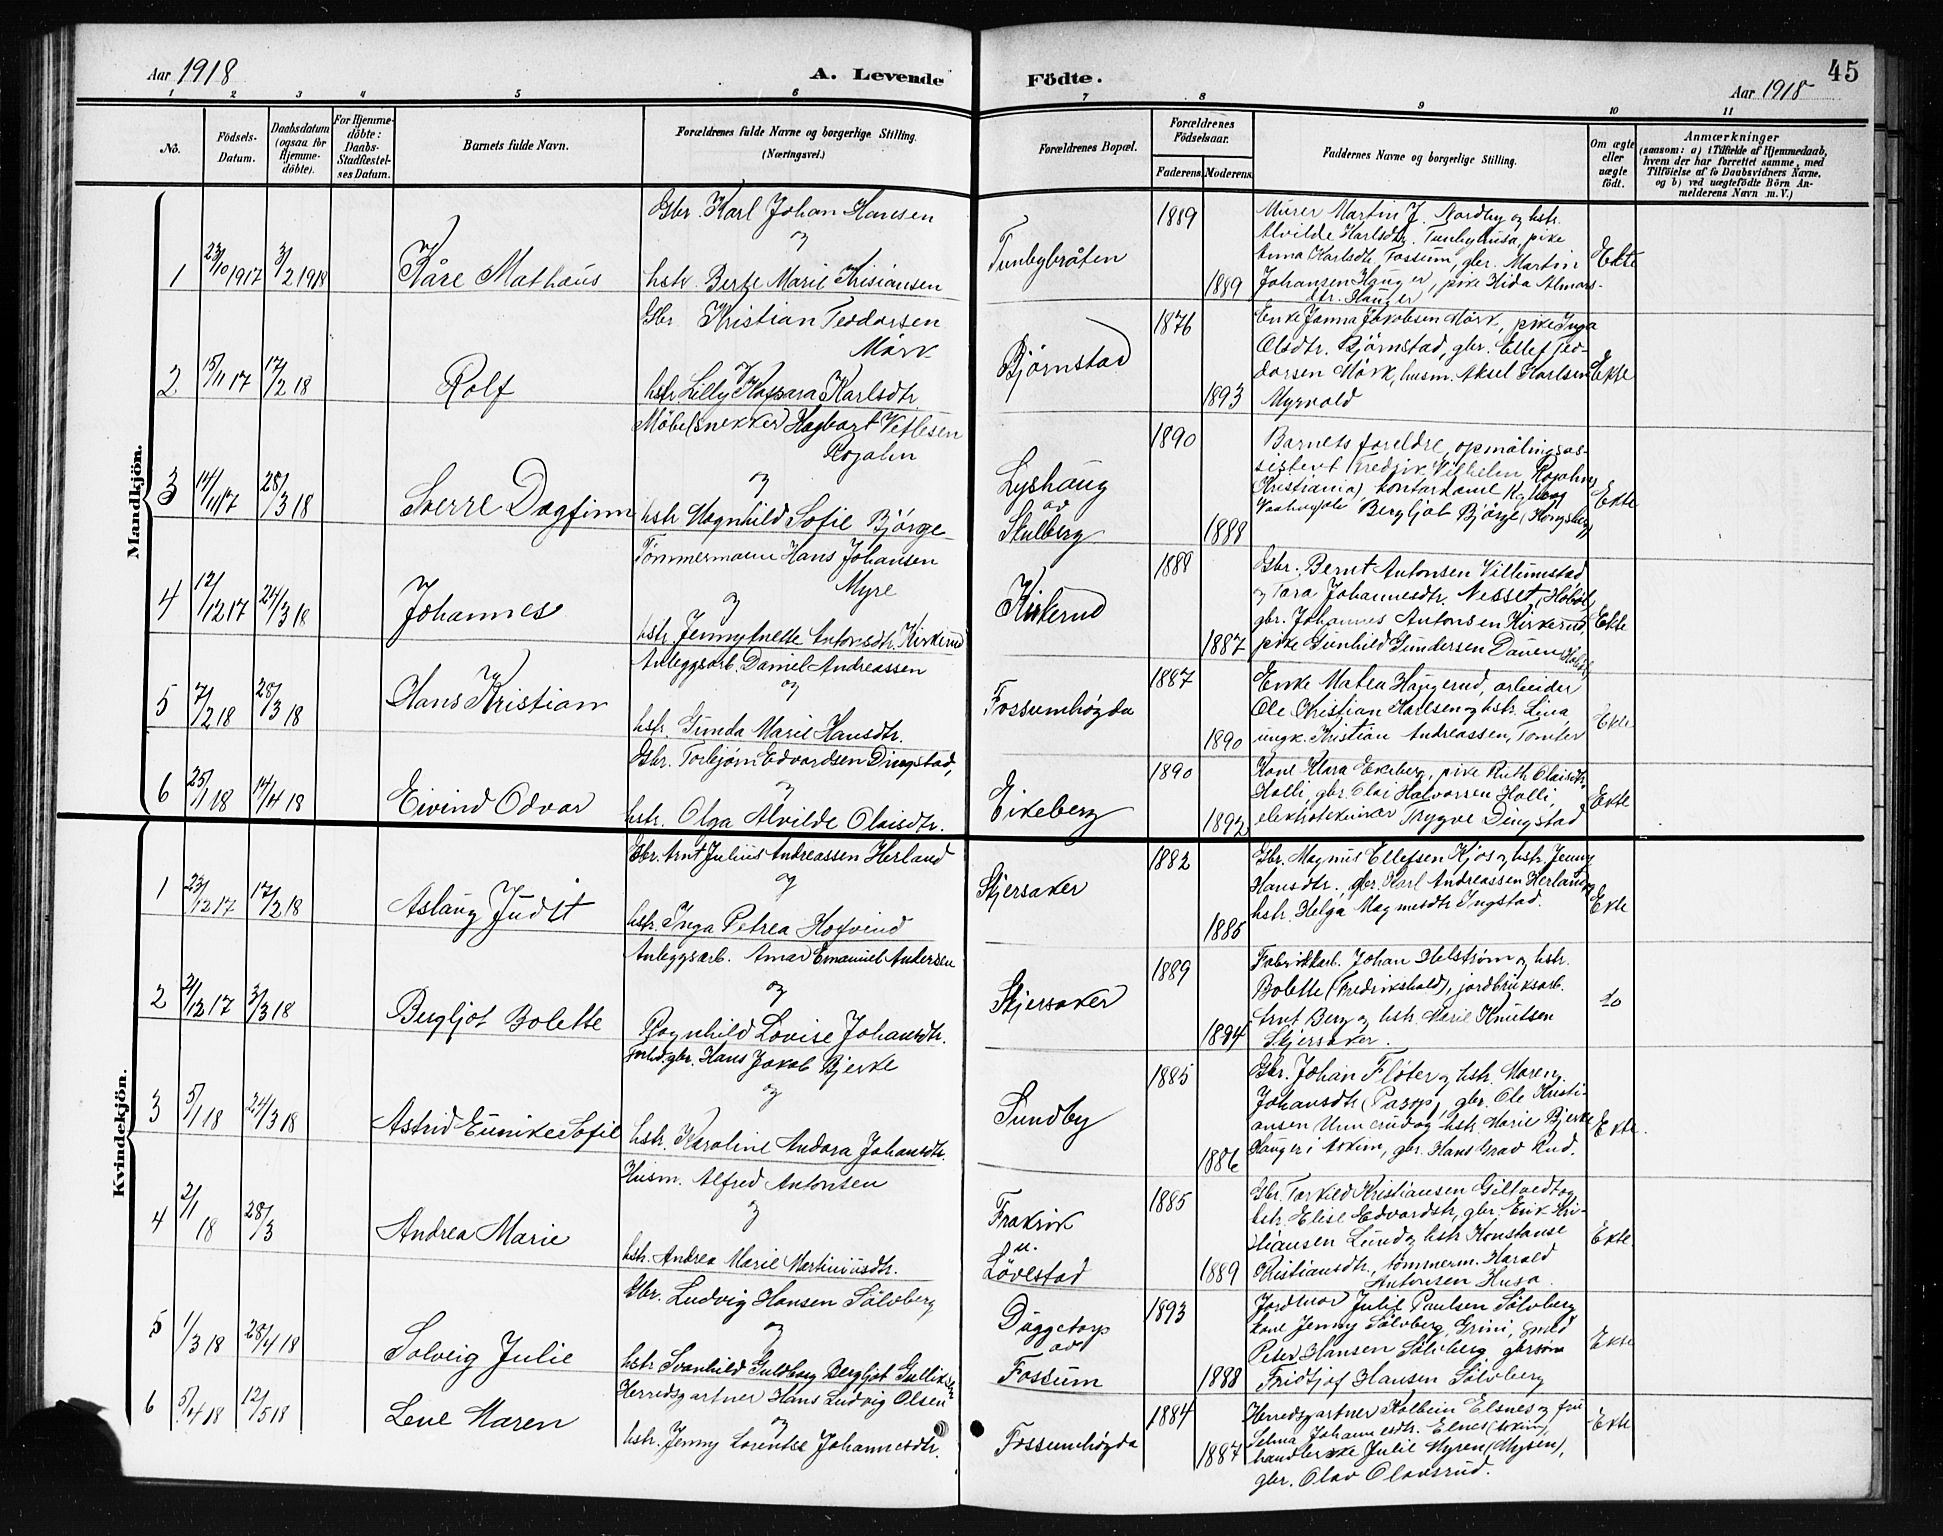 Aar 1918
A. Levende
Födte.
45
Aar 1918
1 2 3 4 5 6 7 8 9 10 11
Nö.
Födsels-
Datum.
Daabsdatum
(ogsaa för
Hjemme-
döbte).
For Hjemme-
döbte:
Daabs-
Stadfæstel-
ses Datum.
Barnets fulde Navn.
Forældrenes fulde Navne og borgerlige Stilling.
(Næringsvei.)
Forældrenes Bopæl.
Forældrenes
Födselsaar.
Faderens. Moderens.
Faddernes Navne og borgerlige Stilling.
Om ægte
eller
uægte
födt.
Anmærkninger
(saasom: a) i Tilfælde af Hjemmedaab,
hvem der har forrettet samme, med
Tilföielse af to Daabsvidners Navne,
og b) ved uægtefödte Börn An-
melderens Navn m. V.)
Mandkjön.
1 23/10 1917 3/2 1918
Kåre Mathæus
Gbr. Karl Johan Hansen
og
hstr. Berte Marie Kristiansen
Tunbybråten
1889
1889
Murer Martin J. Nordby og hstr.
Alvilde Karlsdtr. Tunbyhusa, pike
Anna Karlsdtr. Fossum, gbr. Martin
Johansen Hauger, pike Hilda Almars-
dtr. Hauger
Ekte
2 15/11 17 17/2 18
Rolf
Gbr. Kristian Teodorsen
Mørk
og
hstr. Lilly Karlsdtr.
Bjørnstad
1876
1893
Enke Janna Jakobsen Mørk, pike Inga
Olsdtr. Bjørnstad, gbr. Ellef Teo-
dorsen Mørk, husm. Aksel Karlsen
Myrvold
Ekte
3 14/11 17 28/3 18
Sverre Dagfinn
Møbelsnekker Hagbart Vetlesen
Rojahn
og
hstr. Magnhild Sofie Bjørge
Lyshaug
av
Skulberg
1890
1888
Barnets foreldre, opmålingsas-
sistent Fredrik Vilhelm Rojahn,
Kristiania, kontordame
Bergljot Bjørge (Kongsberg)
Ekte
4 12/12 17 24/3 18
Johannes
Tømmermann Hans Johansen
Myre
og
hstr. Jenny Anette Antonsdtr. Kirkerud
Kirkerud
1888
1887
Gbr. Bernt Antonsen Villumstad
og Tora Johannesdtr. Nesset, Hobøl,
gbr. Johannes Antonsen Kirkerud,
pike Gunhild Gundersen Dauen Hobøl
Ekte
5 7/2 18 28/3 18
Hans Kristian
Anleggsarb. Daniel Andreassen
og
hstr. Gunda Marie Hansdtr.
Fossumhøgda
1887
1890
Enke Matea Haugerud, arbeider
Ole Kristian Karlsen og hstr. Lina,
ungk. Kristian Andreassen, Tomter
Ekte
6 25/1 18 14/4 18
Eivind Odvar
Gbr. Torbjørn Edvardsen Dingstad,
og
hstr. Olga Alvilde Olaisdtr.
Eikeberg
1890
1892
Kone Klara Ekeberg, pike Ruth Olaisdtr.
Holli, gbr. Olai Halvorsen Holli,
elektrotekniker Trygve Dingstad
Ekte
Kvindekjön.
1 23/12 17 17/2 18
Aslaug Judit
Gbr. Arnt Julius Andreassen Herland
og
hstr. Inga Petrea Hofvind
Skjersaker
1882
1885
Gbr. Magnus Ellefsen Kjos og hstr. Jenny
Hansdtr. gbr. Karl Andreassen Herland og
hstr. Helga Magnusdtr. Ingstad.
Ekte
2 21/12 17 3/3 18
Bergljot Bolette
Anleggsarb. Amar Emanuel Andersen
og
Ragnhild Lovise Johansdtr.
Skjersaker
1889
1894
Fabrikkarb. Johan Helstrøm og hstr.
Bolette (Fredrikshald), jordbruksarb.
Arnt Berg og hstr. Marie Knutsen
Skjersaker.
do
3 5/1 18 24/3 18
Astrid Eunike Sofie
Forh. gbr. Hans Jakob Bjerke
og
hstr. Karoline Andora Johansdtr.
Sundby
1885
1886
Gbr. Johan Fløter og hstr. Maren
Johansdtr. (Pasop), gbr. Ole Kristi-
ansen Unnerud og hstr. Marie Bjerke
Hauger i Askim, gbr. Hans Grav Rud.
Ekte.
4 2/1 18 28/3
Andrea Marie
Husm. Alfred Antonsen
og
hstr. Andrea Marie Martiniusdtr.
Frakrik
u.
Løvestad
1885
1889
Gbr. Torkild Kristiansen Giltvedt og
hstr. Elise Edvardsdtr., gbr. Erik Kri-
stiansen Lund og hstr. Konstanse
Kristiansdtr., tømmerm. Harald
Antonsen Husa.
Ekte.
5 1/3 18 28/4 18
Solveig Julie
Gbr. Ludvig Hansen Sölvberg
og
hstr. Svanhild Guldborg Bergljot Gulliksen
Duggetorp
av
Fossum
1893
1888
Jordmor Julie Paulsen Sölvberg
kone Jenny Sölvberg, Grini, smed
Peter Hansen Sölvberg, gbrsøn
Fridtjof Hansen Sölvberg
Ekte
6 5/4 18 12/5 18
Lene Maren
Herredsgartner Hans Ludvig Olsen
og
hstr. Jenny Lorentse Johannesdtr.
Fossumhøgda
1884
1887
Herredsgartner Kolbein Elsnes og fru
Selma Johannesdtr. Elnes (Askim),
handlerske Julie Myren (Mysen),
gbr. Olav Olavsrud.
Ekte